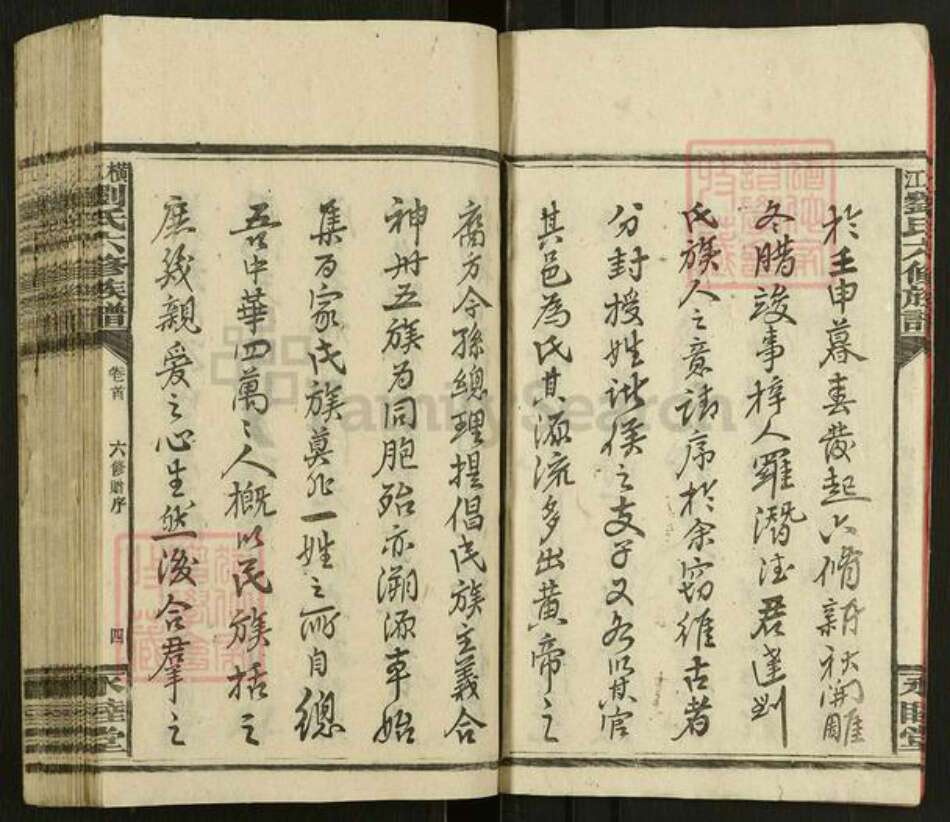 江劉氏六修族譜
永睦堂
於壬申暮春發起六脩新秋開雕
冬腊竣事梓人羅潛德君達劉
氏族人之意請序於余窃維古者
分封授姓诸侯之支子又各以其官
其邑為氏其源流多出黄帝之
裔方今孫總理提倡民族主義合
神州五族为同胞殆亦溯源本始
集百家成族莫非一姓之所自總
吾中華四萬〻人概以民族括之
庶幾親爱之心生然後合羣之
橫
劉氏六修族譜
卷首
六修贈序
四
永睦堂
FamilySearch